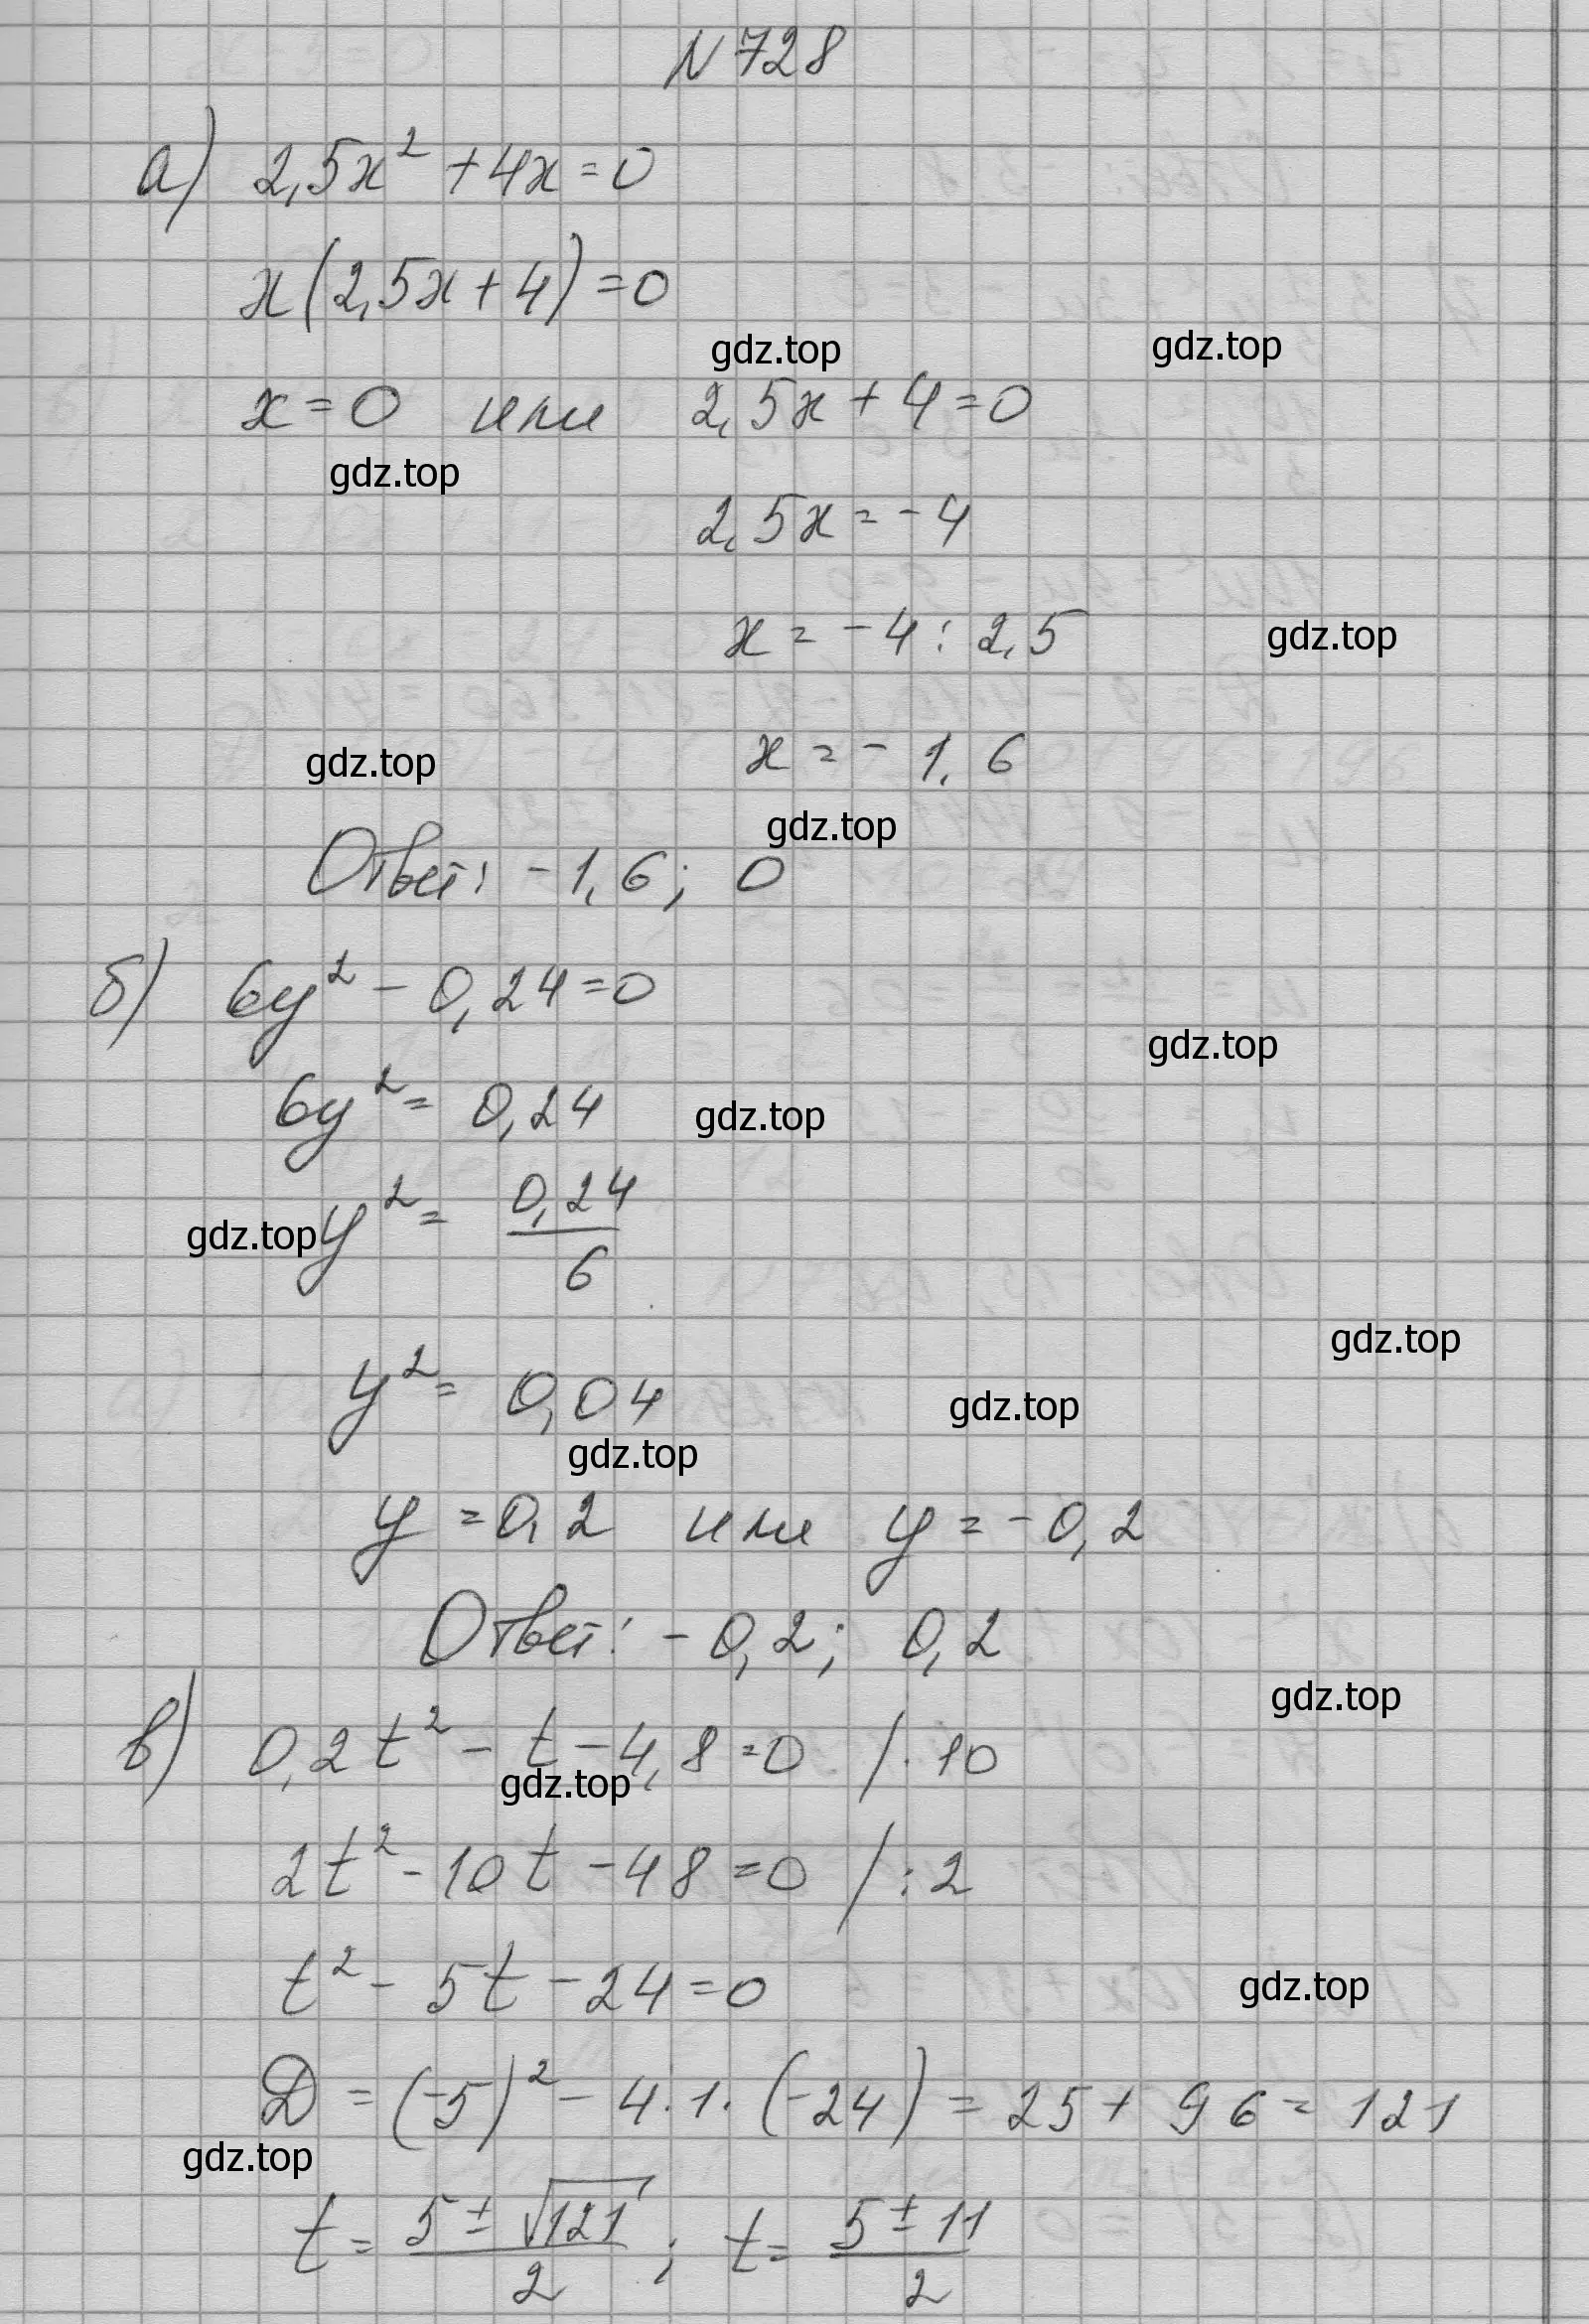 N 728
а) 2,5x² + 4x = 0
x(2,5x + 4) = 0
gdz.top gdz.top
x = 0 или 2,5x + 4 = 0
gdz.top
2,5x = -4
x = -4 : 2,5 gdz.top
gdz.top x = -1,6
gdz.top
Ответ: -1,6; 0
б) 6y² - 0,24 = 0
gdz.top
6y² = 0,24 gdz.top
gdz.top y² = 0,24/6
gdz.top
y² = 0,04 gdz.top
gdz.top
y = 0,2 или y = -0,2
Ответ: -0,2; 0,2
gdz.top
в) 0,2t² - t - 4,8 = 0 / · 10
gdz.top
2t² - 10t - 48 = 0 / : 2
t² - 5t - 24 = 0 gdz.top
D = (-5)² - 4 · 1 · (-24) = 25 + 96 = 121
gdz.top
t = (5 ± √121)/2; t = (5 ± 11)/2